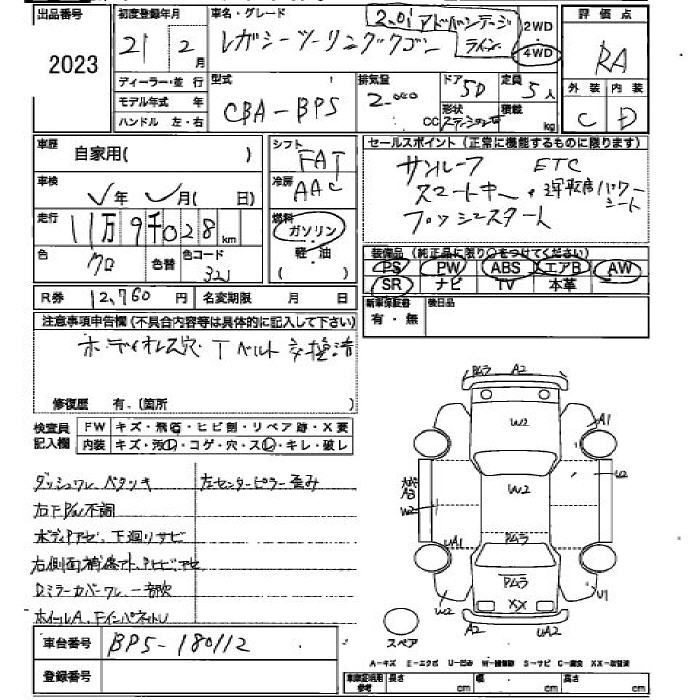 出品番号 2023
初度登録年月 21 2月
車名・グレード レガシーツーリングワゴン 2.0i アドバンテージライン
2WD
4WD
評価点 RA
外装 内装
C D
ディーラー・並行
モデル年式 年
ハンドル 左・右
型式 CBA-BP5
排気量 2.000 CC
ドア 5D
形状 ステーションW
定員 5人
積載 kg
車歴 自家用( )
シフト FAT
車検 年 月( 日)
冷房 AAC
走行 11万9千028km
燃料 ガソリン
軽・油
( )
色 クロ 色替 色コード 32J
R券 12,760円 名変期限 月 日
セールスポイント(正常に機能するものに限ります)
サンルーフ ETC
スマートキー・運転席パワーシート
プッシュスタート
装備品(純正品に限り○をつけてください)
PS PW ABS エアB AW
SR ナビ TV 本革
新車保証書 有・無
後日品
注意事項申告欄(不具合内容等は具体的に記入して下さい)
ボディイオレス穴 Tベルト交換済
修復歴 有.(箇所
検査員記入欄
FW キズ・飛石・ヒビ割・リペア跡・X要
内装 キズ・汚レ・コゲ・穴・スレ・キレ・破レ
ダッシュワレ、ベタツキ 左センターピラー歪み
右F P/W不調
ボディアセ、下廻りサビ
右側面補修アト、
Dミラーカバーワレ、一部欠
ホイールA、
車台番号 BP5-180112
登録番号
Pムラ A2
A1
W2
W2
A3
W2
W2
UA1
Pムラ
Pムラ
XX
W2
U1
A2
UA2
スペア
A-キズ E-エクボ U-凹み W-補修跡 S-サビ C-腐食 XX-交換済
車庫証明用参考 長さ cm 幅 cm 高さ cm